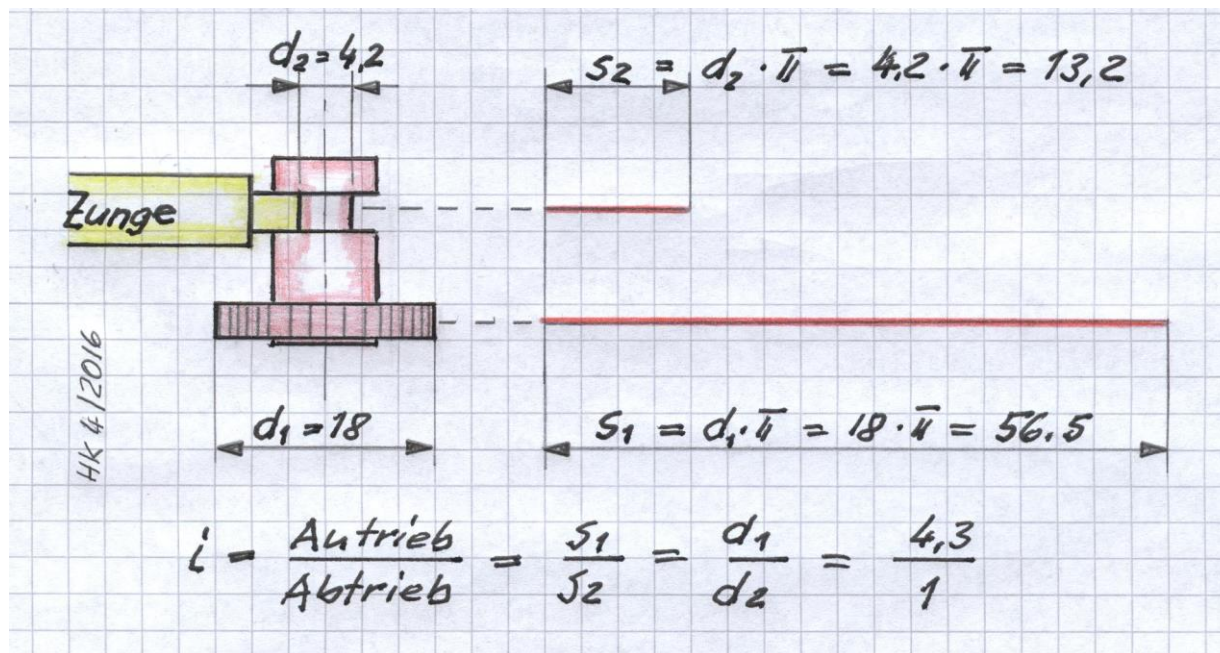 d₂ = 4,2
s₂ = d₂ · π = 4.2 · π = 13,2
Zunge
HK 4/2016
d₁ = 18
s₁ = d₁ · π = 18 · π = 56.5
i = Antrieb / Abtrieb = s₁ / s₂ = d₁ / d₂ = 4,3 / 1